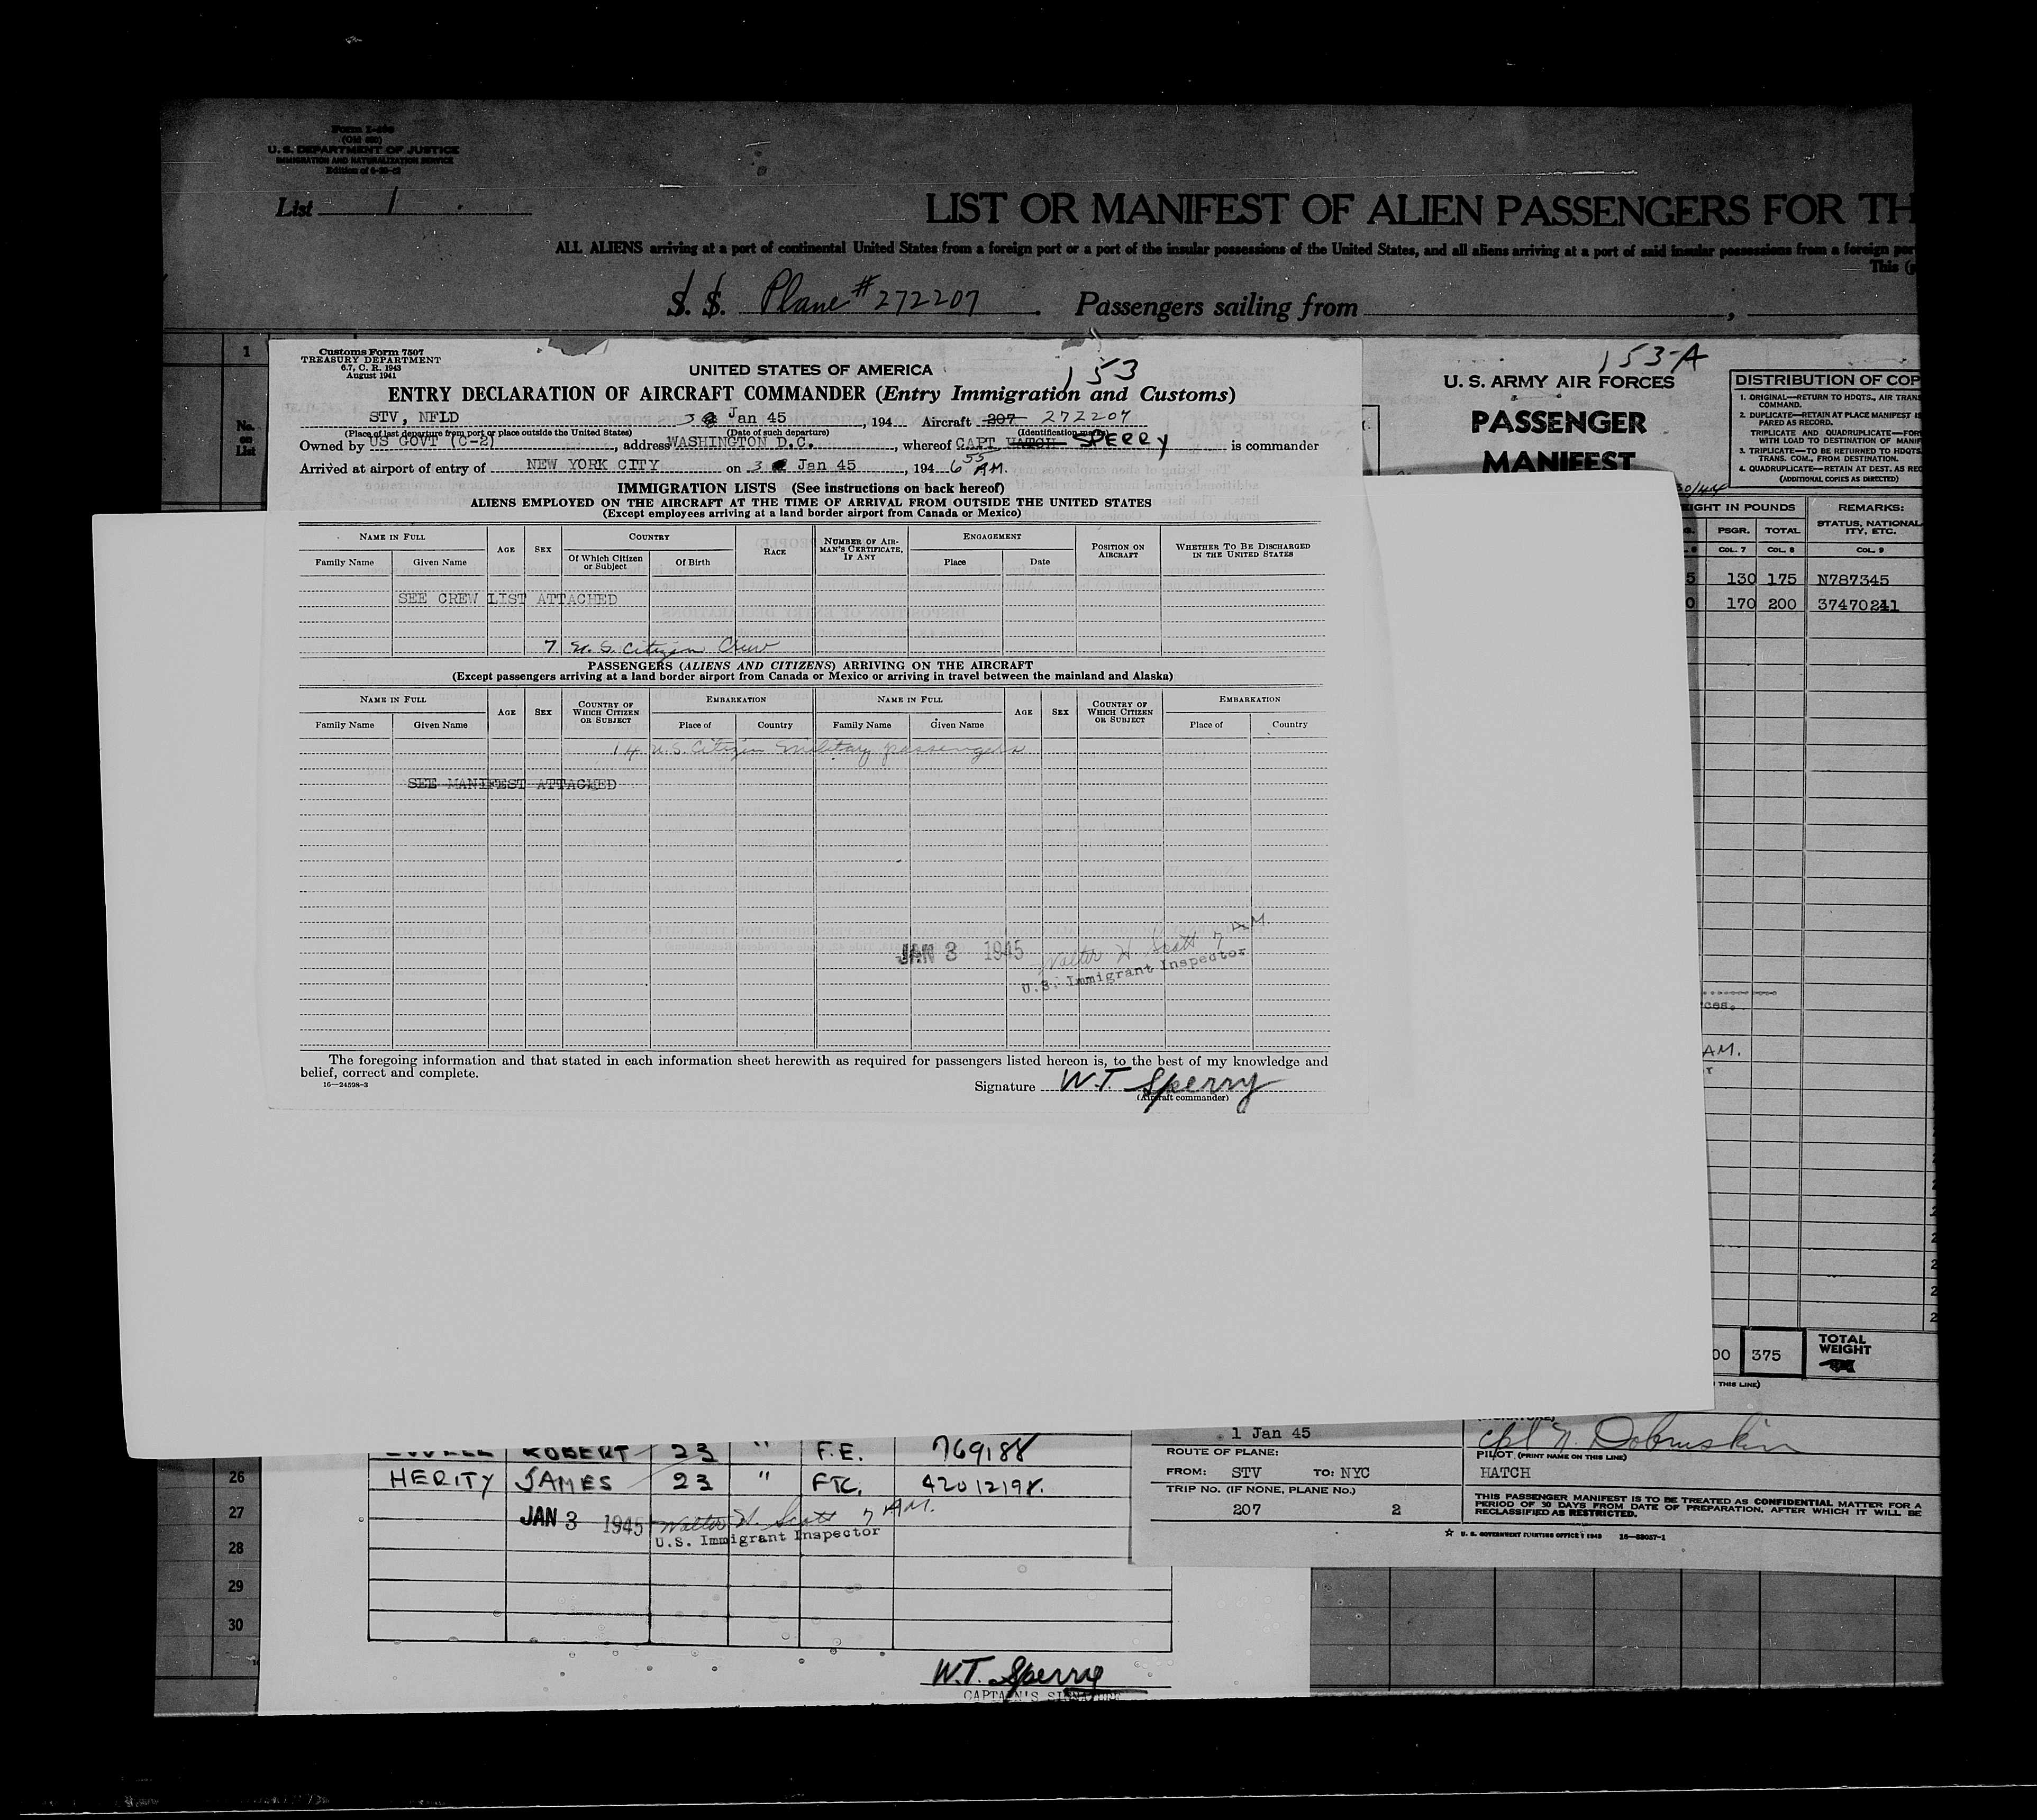 Form I-
(Old )
U. S. DEPARTMENT OF JUSTICE
IMMIGRATION AND NATURALIZATION SERVICE
Edition of
List 1
LIST OR MANIFEST OF ALIEN PASSENGERS FOR TH
ALL ALIENS arriving at a port of continental United States from a foreign port or a port of the insular possessions of the United States, and all aliens arriving at a port of said insular possessions from a foreign por
This (
S. S. Plane # 272207 . Passengers sailing from ,
1
No. on List
Customs Form 7507
TREASURY DEPARTMENT
6.7, C. R. 1943
August 1941
UNITED STATES OF AMERICA
153
ENTRY DECLARATION OF AIRCRAFT COMMANDER (Entry Immigration and Customs)
STV, NFLD 3 Jan 45 , 194 Aircraft 207 272207
(Place of last departure from port or place outside the United States) (Date of such departure) (Identification mark)
Owned by US GOVT (C-2) , address WASHINGTON D.C. , whereof CAPT HATCH SPERRY is commander
Arrived at airport of entry of NEW YORK CITY on 3 Jan 45 , 194 6 55 AM.
IMMIGRATION LISTS (See instructions on back hereof)
ALIENS EMPLOYED ON THE AIRCRAFT AT THE TIME OF ARRIVAL FROM OUTSIDE THE UNITED STATES
(Except employees arriving at a land border airport from Canada or Mexico)
NAME IN FULL AGE SEX COUNTRY RACE NUMBER OF AIRMAN'S CERTIFICATE, IF ANY ENGAGEMENT POSITION ON AIRCRAFT WHETHER TO BE DISCHARGED IN THE UNITED STATES
Family Name Given Name Of Which Citizen or Subject Of Birth Place Date
SEE CREW LIST ATTACHED
7 U. S. Citizen Crew
PASSENGERS (ALIENS AND CITIZENS) ARRIVING ON THE AIRCRAFT
(Except passengers arriving at a land border airport from Canada or Mexico or arriving in travel between the mainland and Alaska)
NAME IN FULL AGE SEX COUNTRY OF WHICH CITIZEN OR SUBJECT EMBARKATION NAME IN FULL AGE SEX COUNTRY OF WHICH CITIZEN OR SUBJECT EMBARKATION
Family Name Given Name Place of Country Family Name Given Name Place of Country
14 U.S. Citizen military passengers
SEE MANIFEST ATTACHED
JAN 3 1945 Walter H. Scott 7 AM
U.S. Immigrant Inspector
The foregoing information and that stated in each information sheet herewith as required for passengers listed hereon is, to the best of my knowledge and
belief, correct and complete.
16—24598-3
Signature W.T. Sperry
(Aircraft commander)
153-A
U. S. ARMY AIR FORCES
PASSENGER
MANIFEST
DISTRIBUTION OF COP
1. ORIGINAL—RETURN TO HDQTS., AIR TRANS
COMMAND.
2. DUPLICATE—RETAIN AT PLACE MANIFEST IS
PARED AS RECORD.
TRIPLICATE AND QUADRUPLICATE—FOR
WITH LOAD TO DESTINATION OF MANIF
3. TRIPLICATE—TO BE RETURNED TO HDQTS.
TRANS. COM., FROM DESTINATION.
4. QUADRUPLICATE—RETAIN AT DEST. AS REC
(ADDITIONAL COPIES AS DIRECTED)
IGHT IN POUNDS REMARKS:
PSGR. TOTAL STATUS, NATIONALITY, ETC.
COL. 7 COL. 8 COL. 9
5 130 175 N787345
0 170 200 37470241
ces.
AM.
00 375 TOTAL WEIGHT
THIS LINE)
1 Jan 45
cpl N. Dobruskin
ROUTE OF PLANE:
PILOT (PRINT NAME ON THIS LINE)
FROM: STV TO: NYC
HATCH
TRIP No. (IF NONE, PLANE No.)
207 2
THIS PASSENGER MANIFEST IS TO BE TREATED AS CONFIDENTIAL MATTER FOR A
PERIOD OF 30 DAYS FROM DATE OF PREPARATION, AFTER WHICH IT WILL BE
RECLASSIFIED AS RESTRICTED.
☆ U. S. GOVERNMENT PRINTING OFFICE: 1943 16—33057-1
ROBERT 23 " F.E. 769188
26 HERITY JAMES 23 " FTC. 42012198.
27 JAN 3 1945 Walter H. Scott 7 AM.
U.S. Immigrant Inspector
28
29
30
W.T. Sperry
CAPTAIN'S SIGNATURE